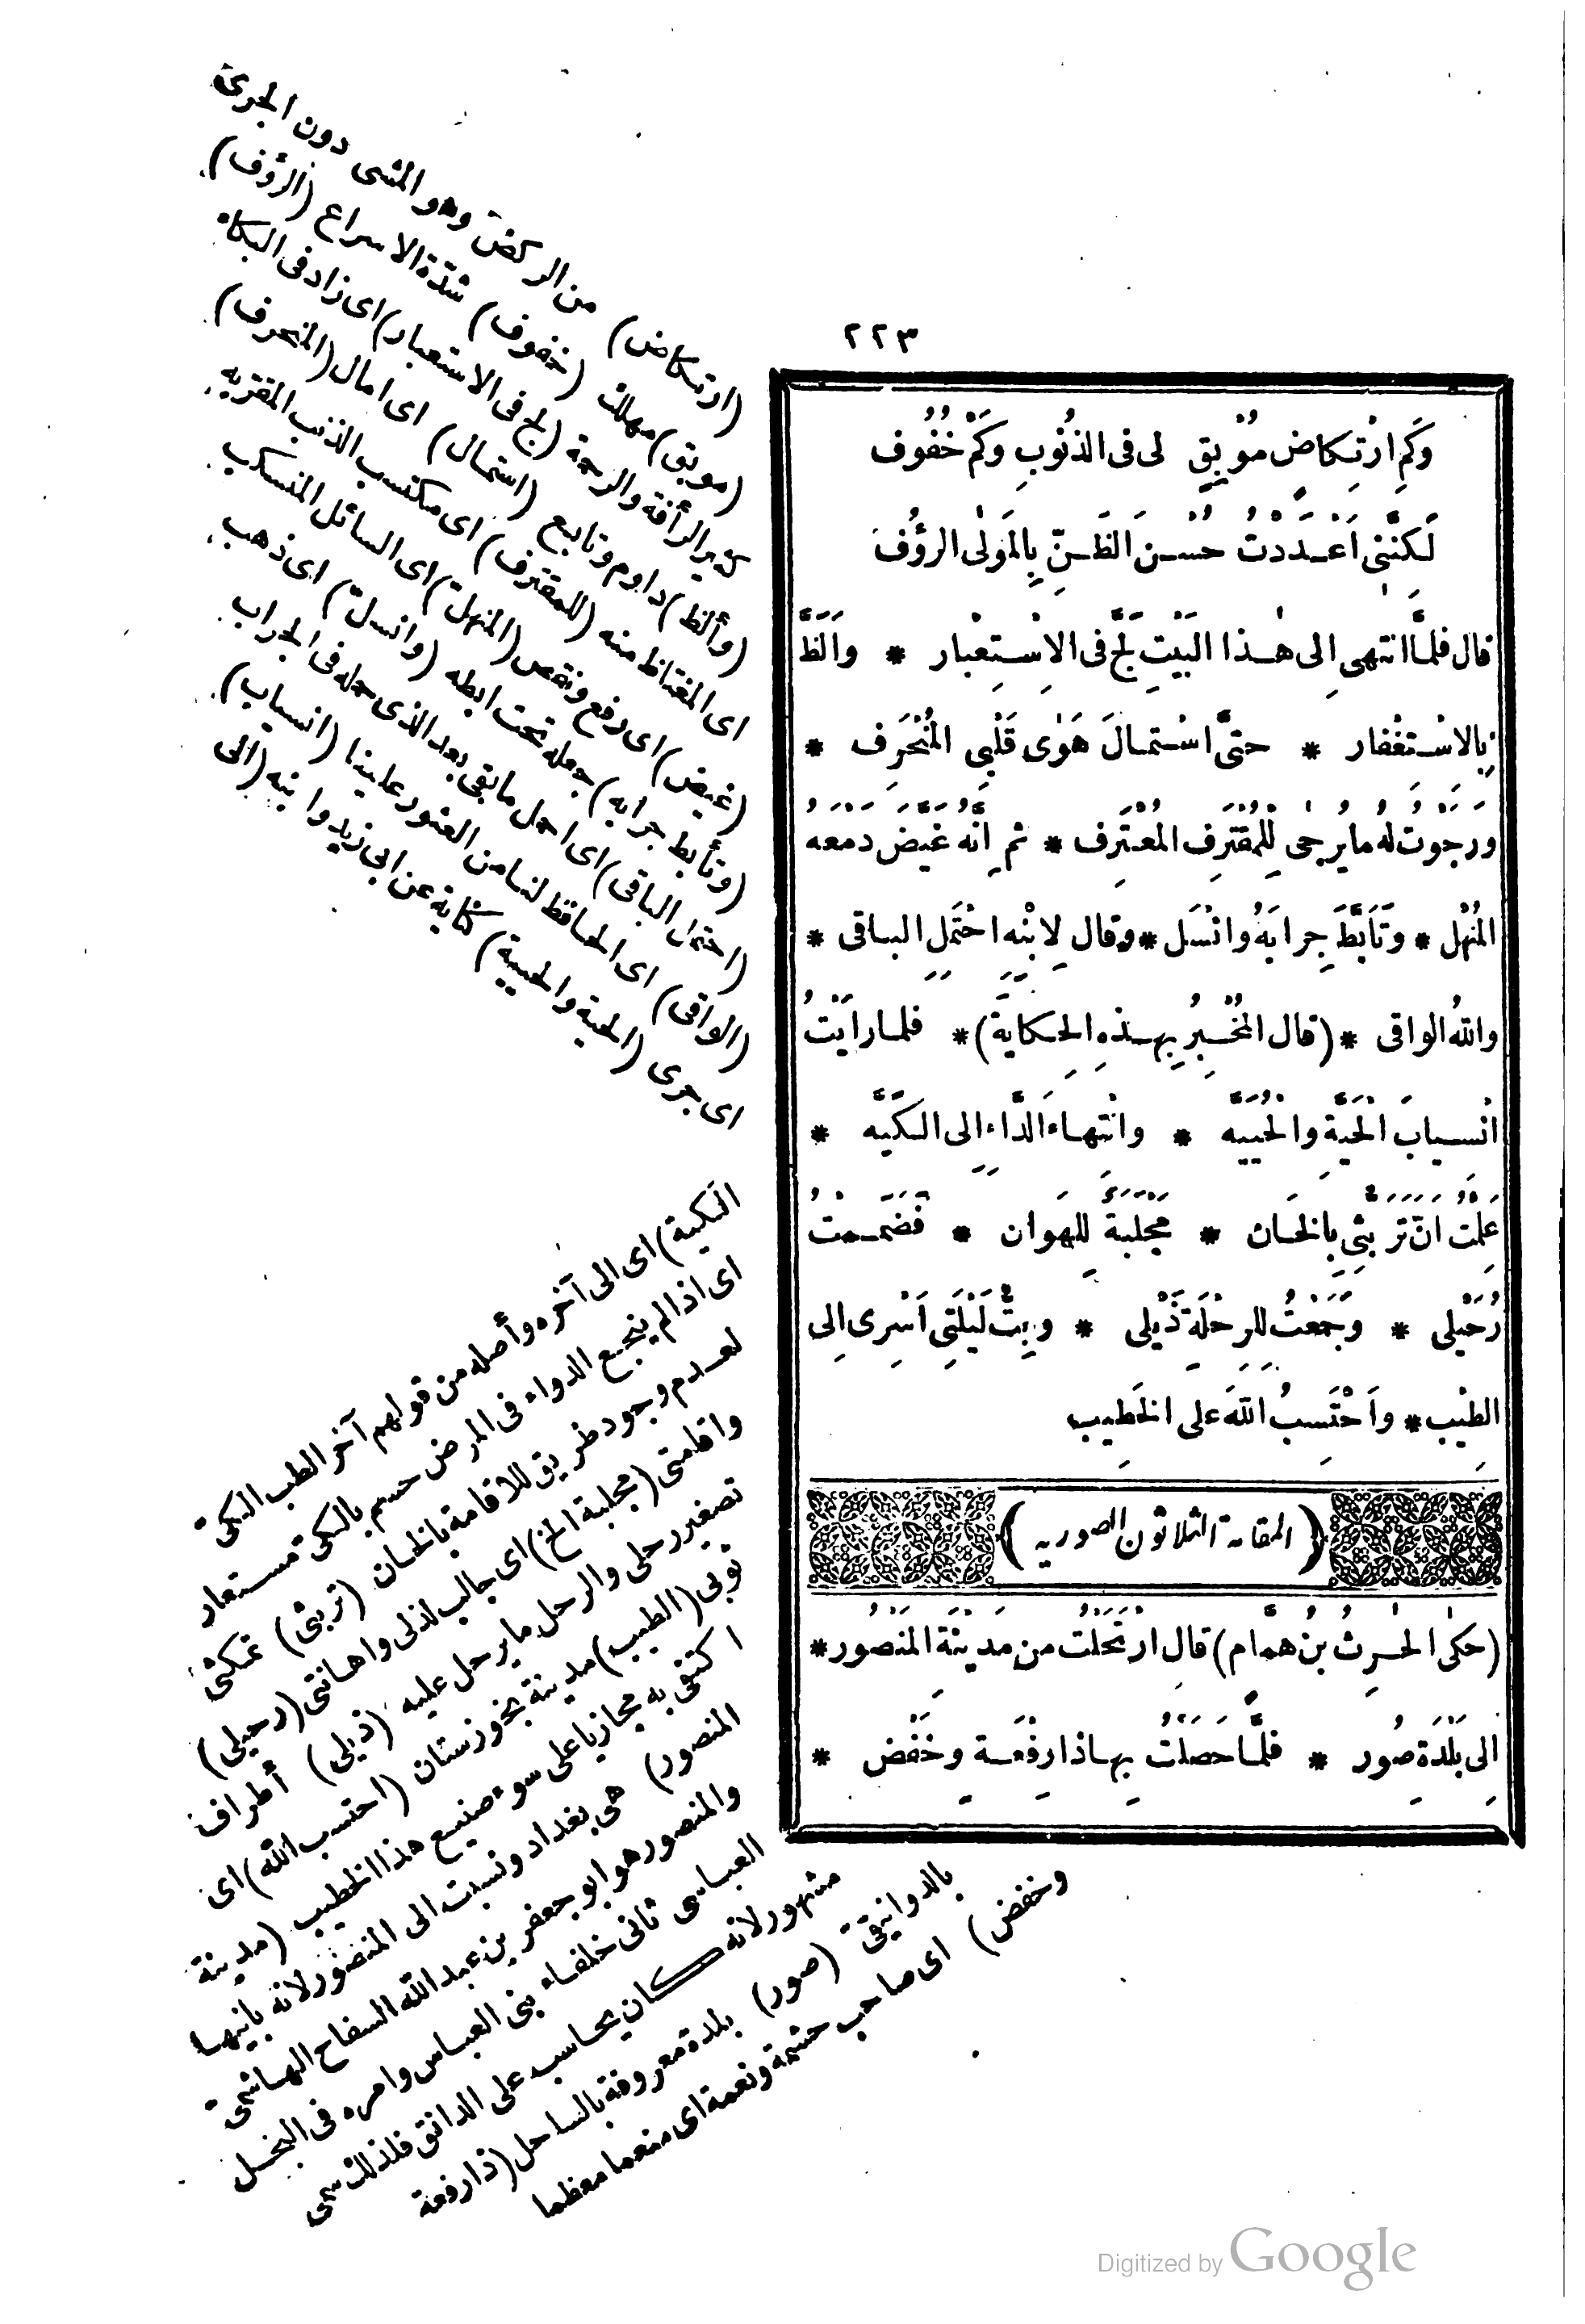 ٢٢٣
وَكَمِ ارْتِكاضٍ مُوْبِقٍ لى فى الذُنُوبِ وَكَمْ خُفُوف
لَكِنَّنى اَعْدَدْتُ حُسْنَ الظَنِّ بِالمَولٰى الرؤُف
قال فلمَّا انتهى اِلى هٰذا البَيْتِ لَجَّ فى الاِسْتِعْبار * واَلَظَّ
بِالاسْتِغْفار * حتَّى اسْتمالَ هَوٰى قَلْبِى المُنْحَرِف *
ورَجَوْتُ لهُ ما يُرجٰى لِلْمُقْتَرِف المُعْتَرِف * ثم اِنَّهُ غَيَّضَ دَمْعَهُ
المُنْهَل * وتَأَبَّطَ جِرابَهُ وانْسَل * وقال لِابْنِهِ احْتَمِلِ الباقى *
واللهُ الواقى * (قال المُخْبِرُ بِهذِهِ الحِكايَة) * فلما رايْتُ
انْسِيابَ الحَيَّةِ والحُيَيَّه * وانْتِهاءَ الدَّاءِ اِلى الكَيَّه *
عَلِمْتُ انّ تَرَبُّثِى بِالخَان * مَجْلَبَةٌ لِلهَوان * فَضَمَمْتُ
رُحَيْلى * وجَمَعْتُ لِلرِحْلَةِ ذَيْلى * وبِتُّ لَيْلَتِى اَسْرِى اِلى
الطِيْب * واَحْتَسِبُ اللّهَ على الخَطِيب
(المقامة الثلاثون الصورية)
(حكٰى الحٰرِثُ بنُ همَّام) قال ارْتَحَلْتُ من مَدِينَةِ المَنصُور *
اِلى بَلْدَةِ صُور * فلمَّا حَصَلْتُ بِها ذا رِفْعَةٍ وخَفْض *
(ارتكاض) من الركض وهو المشى دون الجرى
(موبق) مهلك (خفوف) شدّة الاسراع (الرؤف)
كثير الرأفة والرحمة (لج فى الاستعبار) اى زاد فى البكاء
(وألظ) داوم وتابع (استمال) اى امال (المنحرف)
اى المغتاظ منه (للمقترف) اى مكتسب الذنب المقرّ به
(غيض) اى رفع ونقص (المنهلّ) اى السائل المنسكب
(وتأبط جرابه) جعله تحت ابطه (وانسلّ) اى ذهب
(احتمل الباقى) اى احمل ما بقى بعد الذى حمله فى الجراب
(الواقى) اى الحافظ لنا من العثور علينا (انسياب)
اى جرى (الحية والحيية) كناية عن ابى زيد وابنه (الى
الكية) اى الى آخره وأصله من قولهم آخر الطب الكىّ
اى اذا لم ينجع الدواء فى المرض حسم بالكىّ مستعار
لعدم وجود طريق للاقامة بالخان (تربثى) تمكثى
واقامتى (مجلبة الخ) اى جالب لذلى واهانتى (رحيلى)
تصغير رحلى والرحل ما يرحل عليه (ذيلى) أطراف
ثوبى (الطيب) مدينة بخوزستان (احتسب الله) اى
اكتفى به مجازيا على سوء صنيع هذا الخطيب (مدينة
المنصور) هى بغداد ونسبت الى المنصور لانه بانيها
والمنصور هو ابو جعفر بن عبد الله السفاح الهاشمىّ
العباسى ثانى خلفاء بنى العباس وامره فى البخل
مشهور لانه كان يحاسب على الدانق فلذلك سمى
بالدوانيقىّ (صور) بلدة معروفة بالساحل (ذا رفعة
وخفض) اى صاحب حشمة ونعمة اى منعما معظما
Digitized by Google